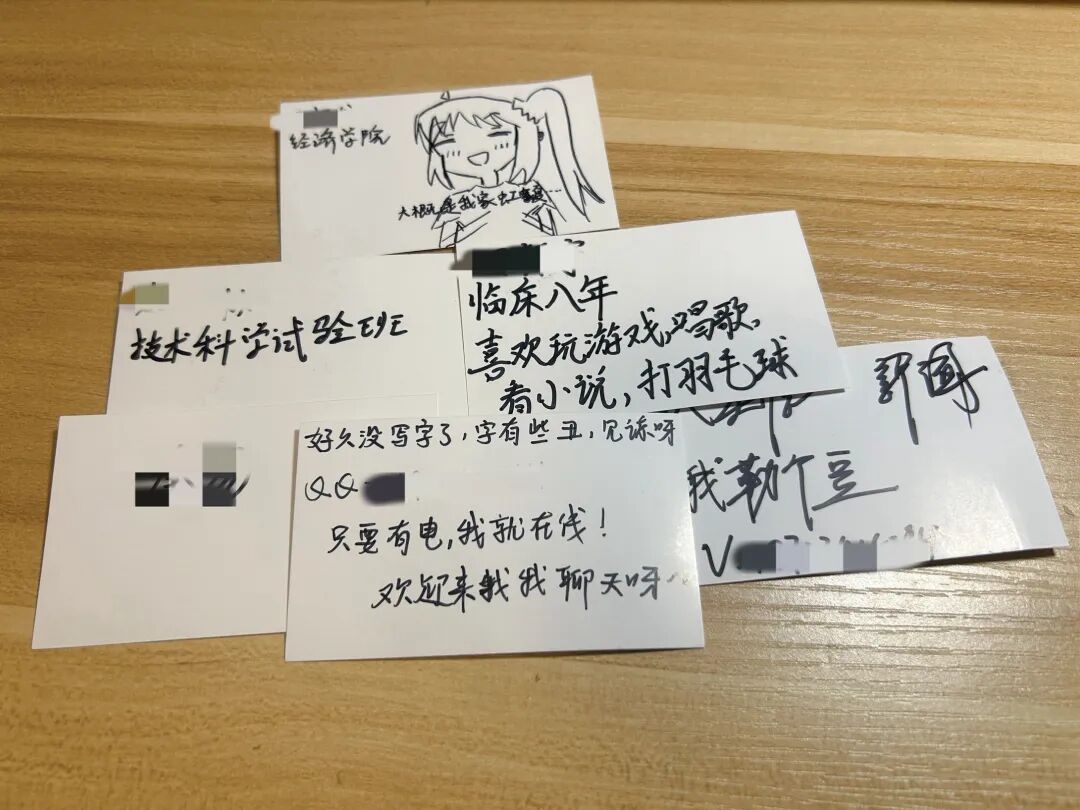 经济学院
大概是我家虹夏
技术科学试验班
临床八年
喜欢玩游戏,唱歌,
看小说,打羽毛球
好久没写字了,字有些丑,见谅呀
QQ
只要有电,我就在线!
欢迎来找我聊天呀~
新闻
我勒个豆
V